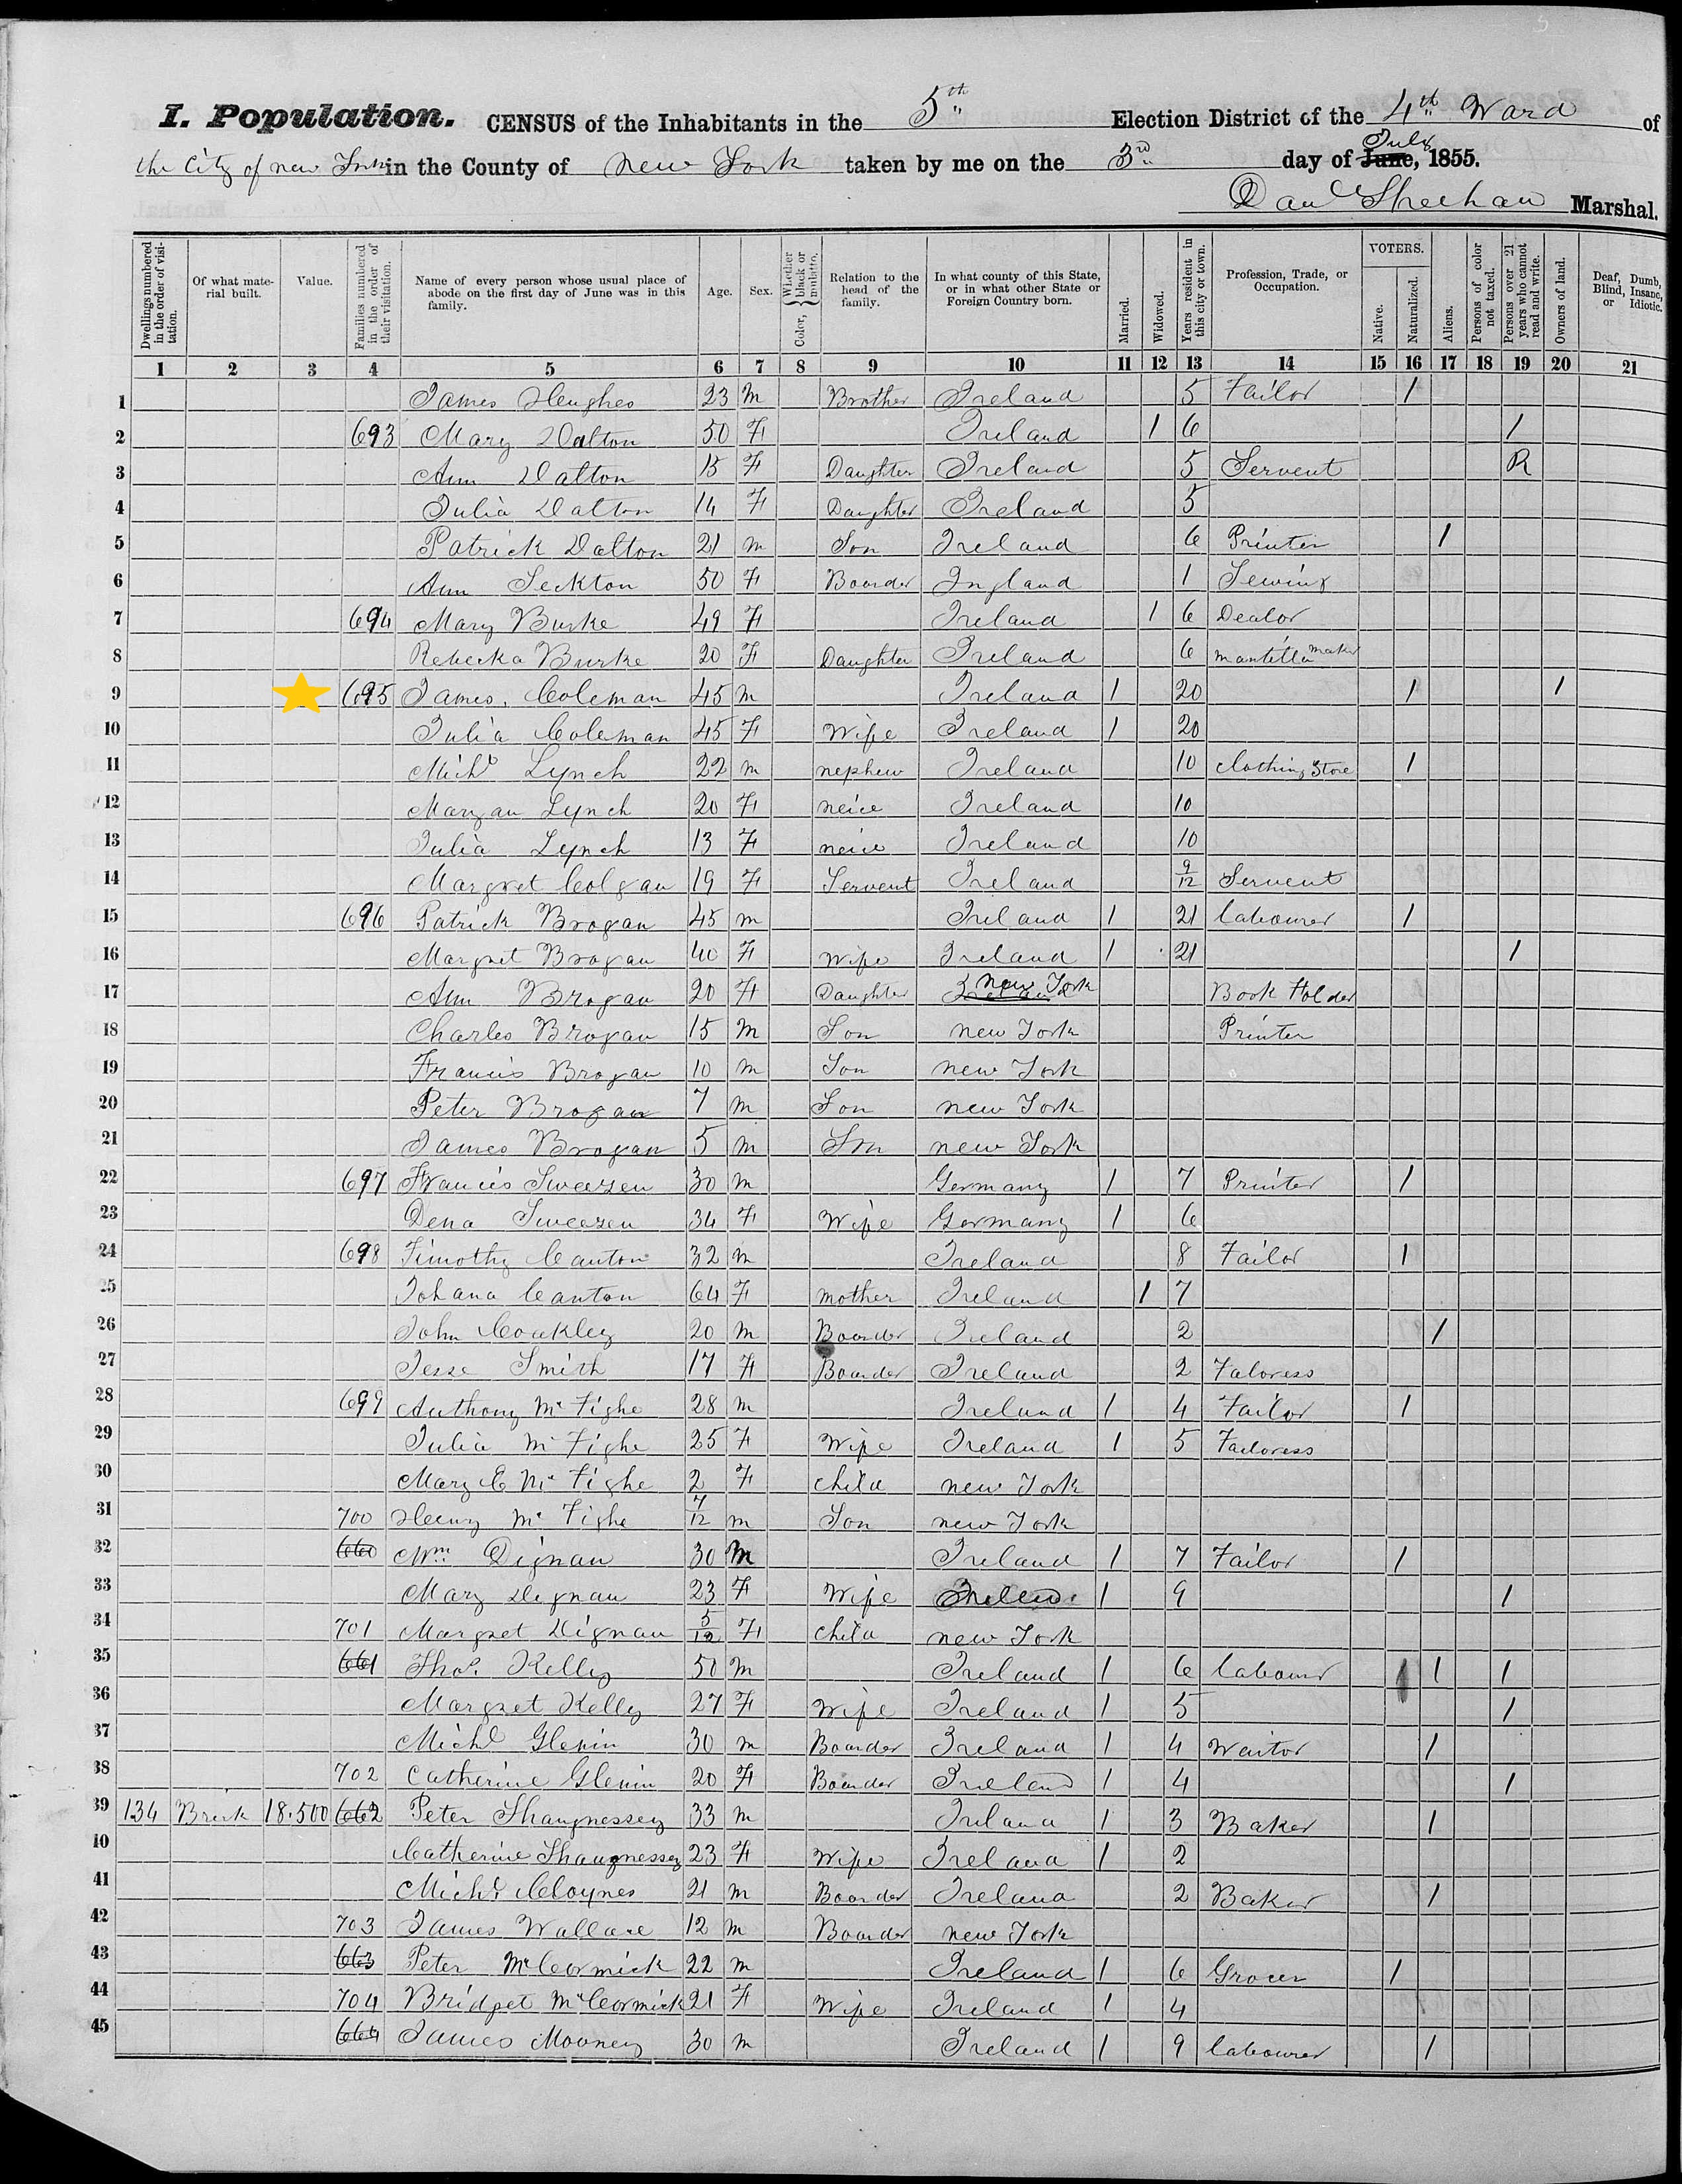 I. Population. CENSUS of the Inhabitants in the 5th Election District of the 4th Ward of
the City of new York in the County of new York taken by me on the 3rd day of June, July 1855.
Danl Sheehan Marshal.
Dwellings numbered in the order of visitation. Of what material built. Value. Families numbered in the order of their visitation. Name of every person whose usual place of abode on the first day of June was in this family. Age. Sex. Color, Whether black or mulatto. Relation to the head of the family. In what county of this State, or in what other State or Foreign Country born. Married. Widowed. Years resident in this city or town. Profession, Trade, or Occupation. VOTERS. Native. Naturalized. Aliens. Persons of color not taxed. Persons over 21 years who cannot read and write. Owners of land. Deaf, Dumb, Blind, Insane, or Idiotic.
1 2 3 4 5 6 7 8 9 10 11 12 13 14 15 16 17 18 19 20 21
1 James Heughes 23 m Brother Ireland 5 Tailor 1
2 693 Mary Dalton 50 F Ireland 1 6 1
3 Ann Dalton 15 F Daughter Ireland 5 Servent R
4 Julia Dalton 14 F Daughter Ireland 5
5 Patrick Dalton 21 m Son Ireland 6 Printer 1
6 Ann Seckton 50 F Boarder Ingland 1 Sewing
7 694 Mary Burke 49 F Ireland 1 6 Dealor
8 Rebecka Burke 20 F Daughter Ireland 6 mantilla maker
9 695 James. Coleman 45 m Ireland 1 20 1 1
10 Julia Coleman 45 F Wife Ireland 1 20
11 Michl Lynch 22 m nephew Ireland 10 clothing Store 1
12 Margan Lynch 20 F neice Ireland 10
13 Julia Lynch 13 F neice Ireland 10
14 Margret Colgan 19 F Servent Ireland 9/12 Servent
15 696 Patrick Brogan 45 m Ireland 1 21 labourer 1
16 Margret Brogan 40 F Wife Ireland 1 21 1
17 Ann Brogan 20 F Daughter Ireland new York Book Holder
18 Charles Brogan 15 m Son new York Printer
19 Francis Brogan 10 m Son new York
20 Peter Brogan 7 m Son new York
21 James Brogan 5 m Son new York
22 697 Francis Sweezen 30 m Germany 1 7 Printer 1
23 Dena Sweezen 34 F Wife Germany 1 6
24 698 Timothy Canton 32 m Ireland 8 Tailor 1
25 Johana Canton 64 F mother Ireland 1 7
26 John Coakley 20 m Boarder Ireland 2 1
27 Jesse Smith 17 F Boarder Ireland 2 Taloress
28 699 Anthony Mc Tighe 28 m Ireland 1 4 Tailor 1
29 Julia Mc Tighe 25 F Wife Ireland 1 5 Tailoress
30 Mary E Mc Tighe 2 F child new York
31 700 Henry Mc Tighe 7/12 m Son new York
32 660 Wm Dignan 30 m Ireland 1 7 Tailor 1
33 Mary Dignan 23 F Wife Ireland 1 9 1
34 701 Margret Dignan 5/12 F child new York
35 661 Thos. Kelly 50 m Ireland 1 6 labourer 1 1 1
36 Margret Kelly 27 F Wife Ireland 1 5 1
37 Michl Glenin 30 m Boarder Ireland 1 4 Waitor 1
38 702 Catherine Glenin 20 F Boarder Ireland 1 4 1
39 134 Brick 18.500 662 Peter Shaugnessey 33 m Ireland 1 3 Baker 1
10 Catherine Shaugnessey 23 F Wife Ireland 1 2
41 Michl Cloynes 21 m Boarder Ireland 2 Baker 1
42 703 James Wallace 12 m Boarder new York
43 663 Peter McCormick 22 m Ireland 1 6 Grocer 1
44 704 Bridget McCormick 21 F Wife Ireland 1 4
45 664 James Mooney 30 m Ireland 1 9 labourer 1